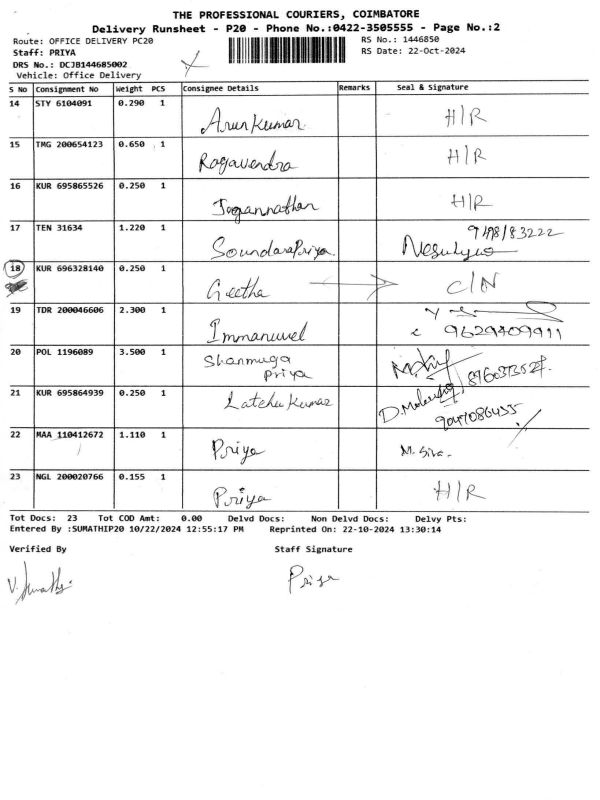 THE PROFESSIONAL COURIERS, COIMBATORE
Delivery Runsheet - P20 - Phone No.:0422-3505555 - Page No.:2
Route: OFFICE DELIVERY PC20 RS No.: 1446850
Staff: PRIYA RS Date: 22-Oct-2024
DRS No.: DCJB144685002
Vehicle: Office Delivery
S No Consignment No Weight PCS Consignee Details Remarks Seal & Signature
14 STY 6104091 0.290 1 Arunkumar H/R
15 TMG 200654123 0.650 1 Ragavendra H/R
16 KUR 695865526 0.250 1 Jagannathan H/R
17 TEN 31634 1.220 1 SoundaraPriya
18 KUR 696328140 0.250 1 Geetha C/N
19 TDR 200046606 2.300 1 Immanuvel 9629409911
20 POL 1196089 3.500 1 Shanmuga
Priya
21 KUR 695864939 0.250 1 Latchu Kumar
22 MAA 110412672 1.110 1 Priya M. Siva.
23 NGL 200020766 0.155 1 Priya H/R
Tot Docs: 23 Tot COD Amt: 0.00 Delvd Docs: Non Delvd Docs: Delvy Pts:
Entered By :SUMATHIP20 10/22/2024 12:55:17 PM Reprinted On: 22-10-2024 13:30:14
Verified By Staff Signature
Priya